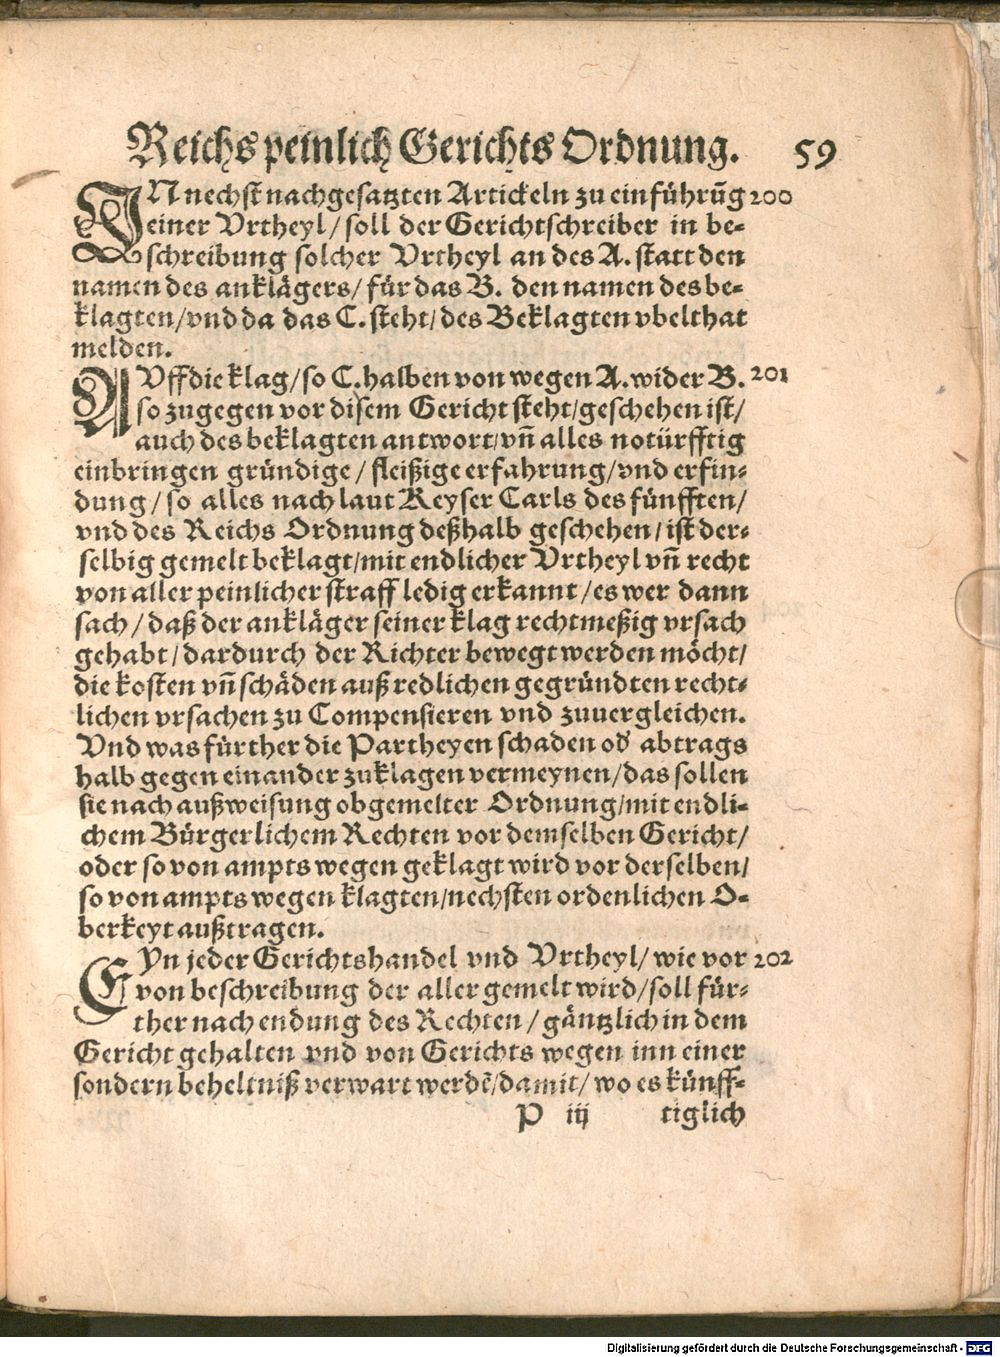 Reichs peinlich Gerichts Ordnung. 59
IN nechst nachgesatzten Artickeln zu einführūg 200
einer Vrtheyl/ soll der Gerichtschreiber in be-
schreibung solcher Vrtheyl an des A. statt den
namen des anklägers/ für das B. den namen des be-
klagten/vnd da das C. steht/ des Beklagten vbelthat
melden.
AVff die klag/ so C. halben von wegen A. wider B. 201
so zugegen vor disem Gericht steht/geschehen ist/
auch des beklagten antwort/ vn̄ alles notürfftig
einbringen gründige / fleißige erfahrung/vnd erfin-
dung/ so alles nach laut Keyser Carls des fünfften/
vnd des Reichs Ordnung deßhalb geschehen/ ist der-
selbig gemelt beklagt/mit endlicher Vrtheyl vn̄ recht
von aller peinlicher straff ledig erkannt/ es wer dann
sach/ daß der ankläger seiner klag rechtmeßig vrsach
gehabt/ dardurch der Richter bewegt werden möcht/
die kosten vn̄ schäden auß redlichen gegründten recht-
lichen vrsachen zu Compensieren vnd zuuergleichen.
Vnd was fürther die Partheyen schaden od' abtrags
halb gegen einander zuklagen vermeynen/das sollen
sie nach außweisung obgemelter Ordnung/mit endli-
chem Bürgerlichem Rechten vor demselben Gericht/
oder so von ampts wegen geklagt wird vor derselben/
so von ampts wegen klagten/nechsten ordenlichen O-
berkeyt außtragen.
EYn jeder Gerichtshandel vnd Vrtheyl/ wie vor 202
von beschreibung der aller gemelt wird/ soll für-
ther nach endung des Rechten / gäntzlich in dem
Gericht gehalten vnd von Gerichts wegen inn einer
sondern beheltniß verwart werdē/damit/ wo es künff-
P iij tiglich
Digitalisierung gefördert durch die Deutsche Forschungsgemeinschaft - DFG